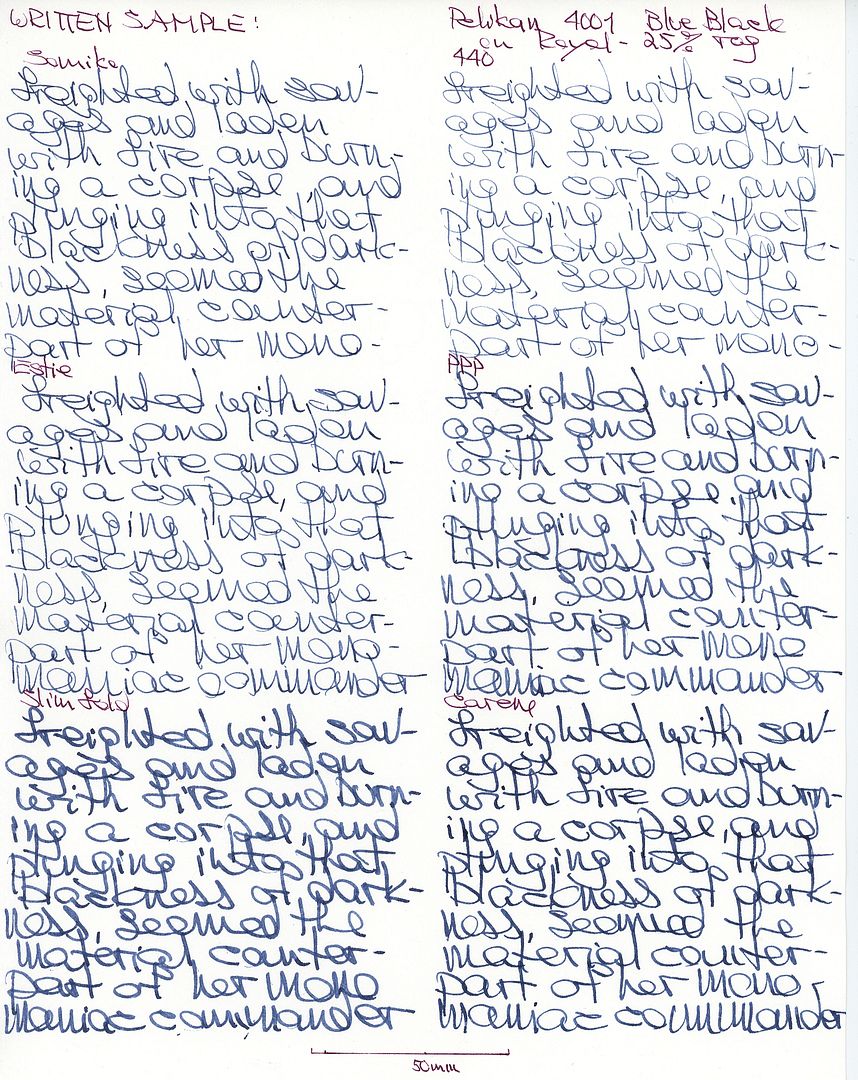 WRITTEN SAMPLE:
Pelikan 4001 Blue Black
on Royal - 25% rag
Somiko
freighted with sav-
ages and laden
with fire and burn-
ing a corpse, and
plunging into that
blackness of dark-
ness, seemed the
material counter-
part of her mono-
440
freighted with sav-
ages and laden
with fire and burn-
ing a corpse, and
plunging into that
blackness of dark-
ness, seemed the
material counter-
part of her mono-
Estie
freighted with sav-
ages and laden
with fire and burn-
ing a corpse, and
plunging into that
blackness of dark-
ness, seemed the
material counter-
part of her mono-
maniac commander
PPP
freighted with sav-
ages and laden
with fire and burn-
ing a corpse, and
plunging into that
blackness of dark-
ness, seemed the
material counter-
part of her mono
maniac commander
Slimfold
freighted with sav-
ages and laden
with fire and burn-
ing a corpse, and
plunging into that
blackness of dark-
ness, seemed the
material counter-
part of her mono
maniac commander
Carene
freighted with sav-
ages and laden
with fire and burn-
ing a corpse, and
plunging into that
blackness of dark-
ness, seemed the
material counter-
part of her mono-
maniac commander
50mm